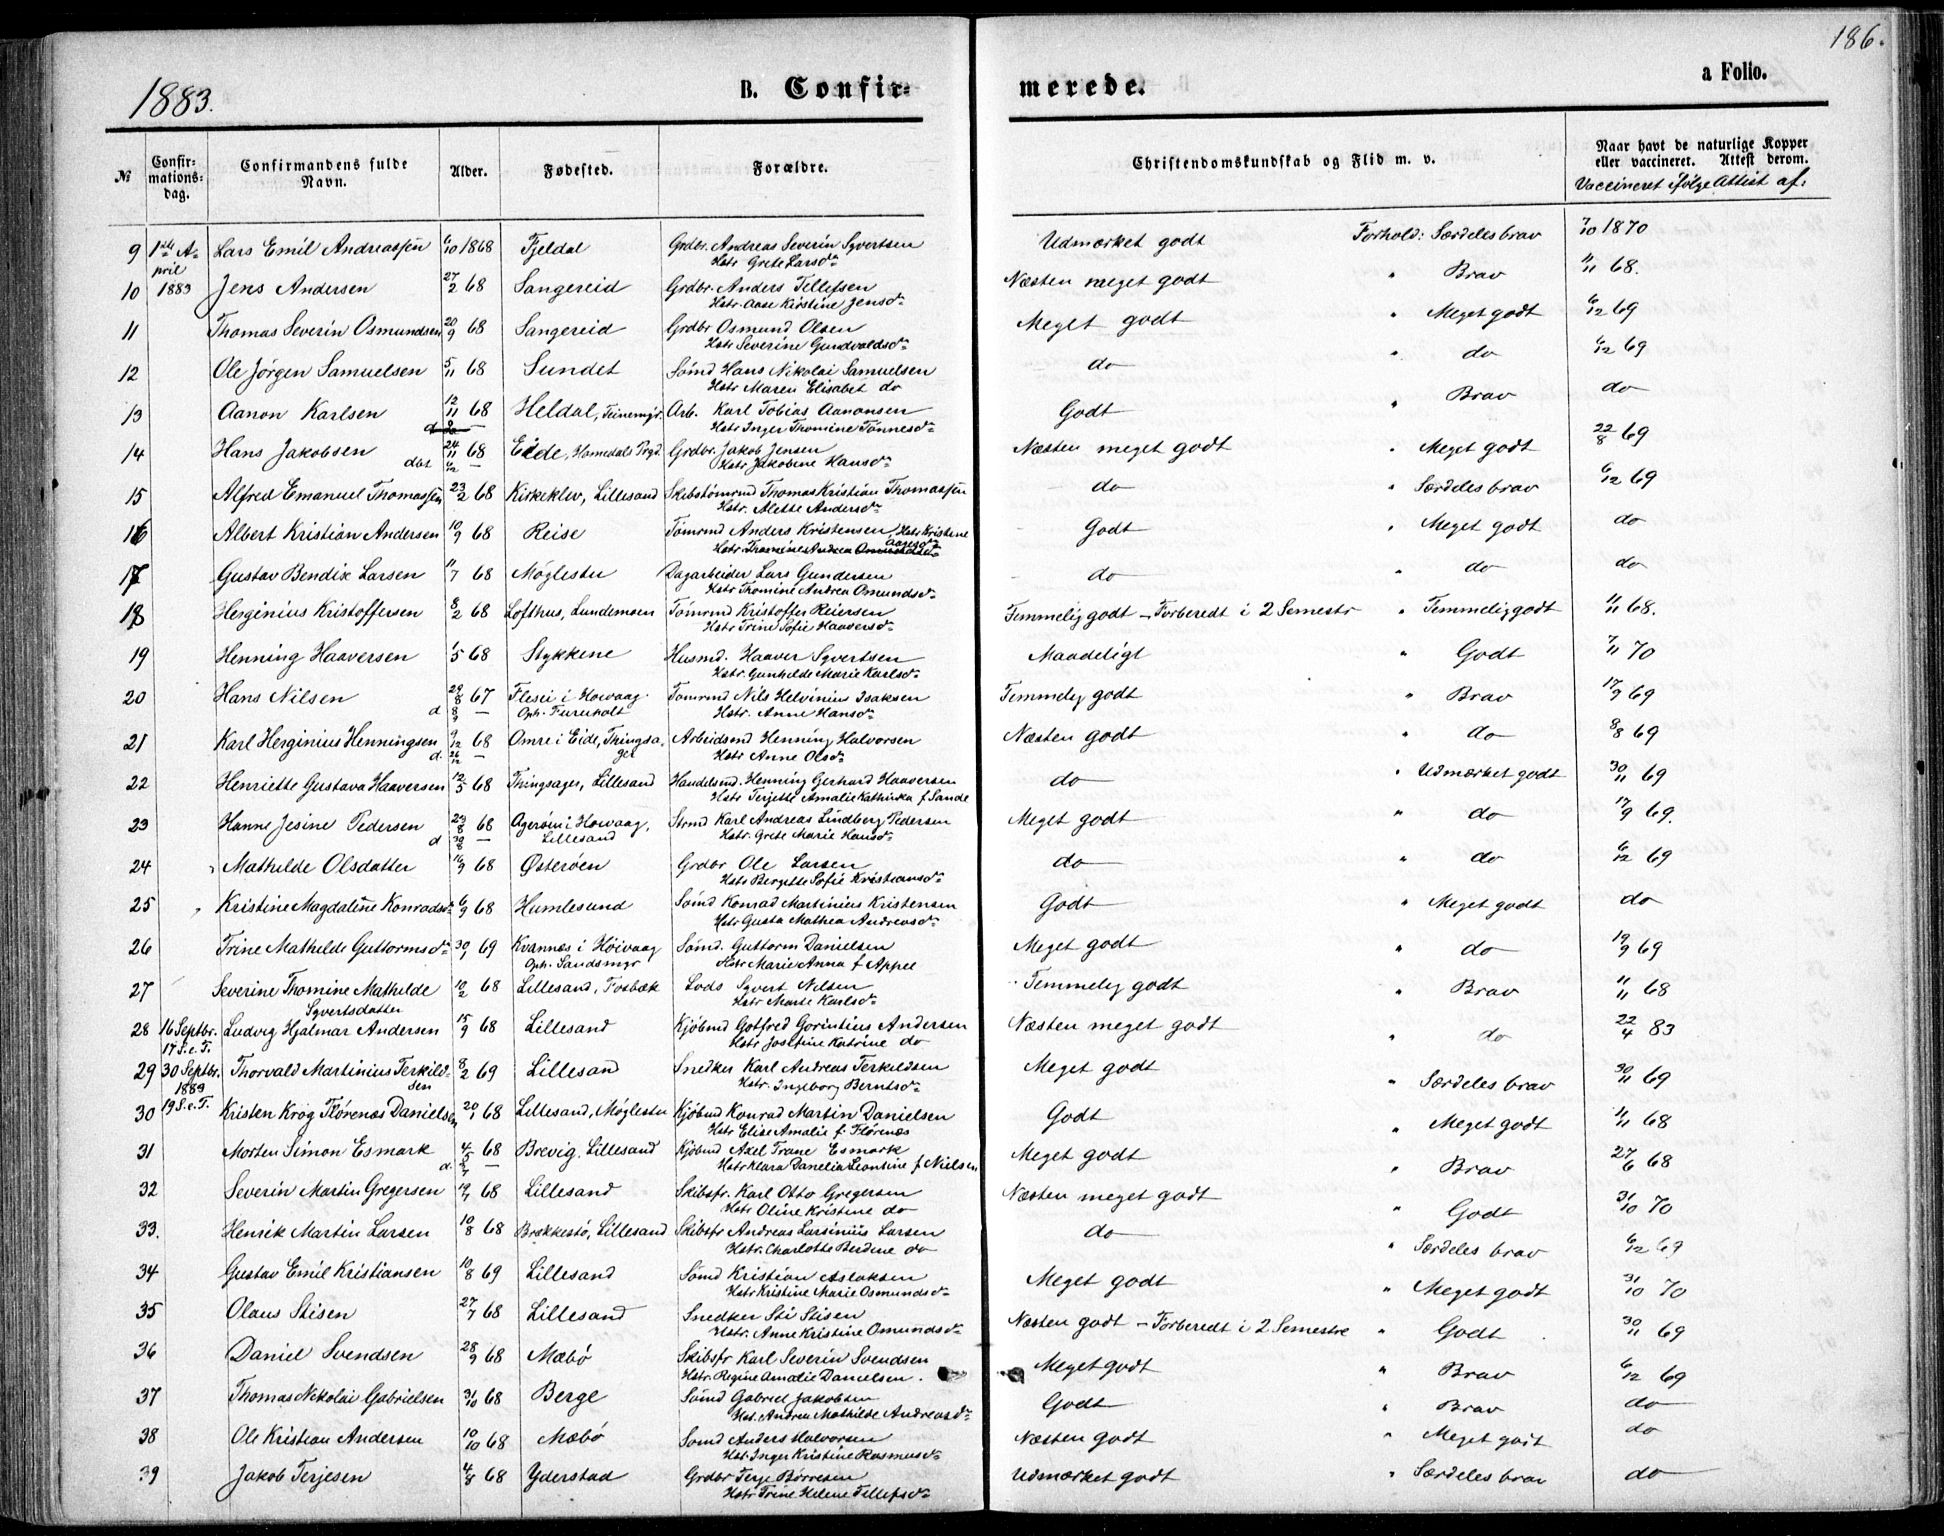 186.
1883.
B. Confirmerede.
a Folio.
№ Confirmationsdag. Confirmandens fulde Navn. Alder. Fødested. Forældre. Christendomskundskab og Flid m. v. Naar havt de naturlige Kopper eller vaccineret. Attest derom.
Vaccineret ifølge Attest af:
9 1ste A- Lars Emil Andreassen 6/10 1868 Fjeldal Grdbr. Andreas Severin Syvertsen Udmærket godt Forhold: Særdeles brav 7/10 1870
pril Hstr Grete Larsdr
10 1883 Jens Andersen 27/2 68 Sangereid Grdbr. Anders Tellefsen Næsten meget godt " Brav 11/11 68.
Hstr. Aase Kirstine Jensdr
11 Thomas Severin Osmundsen 20/9 68 Sangereid Grdbr Osmund Olsen Meget godt " Meget godt 6/12 69
Hstr Severine Gundvaldsdr
12 Ole Jørgen Samuelsen 5/11 68 Sundet Sømd Hans Nikolai Samuelsen do " do 6/12 69
Hstr Maren Elisabet do
13 Aanon Karlsen 12/11 68 Heldal, Teinemyr. Arb. Karl Tobias Aanonsen Godt " Brav do
Hstr Inger Thomine Tønnesdr
14 Hans Jakobsen 24/11 68 Eide, Homedals Prgd. Grdbr. Jakob Jensen Næsten meget godt " Meget godt 22/8 69
dbt 6/12 — Hstr. Jakobine Hansdr
15 Alfred Emanuel Thomassen 23/2 68 Kirkeklev, Lillesand Skibstømrmd Thomas Kristian Thomassen do " Særdeles brav 6/12 69
Hstr. Alette Andersdr
16 Albert Kristian Andersen 10/9 68 Reise Tømrmd Anders Kristensen, Hstr Kristine Godt " Meget godt do
Hstr Thomine Andrea
17 Gustav Bendix Larsen 11/7 68 Møglestu Dagarbeider Lars Gundersen do " do do
Hstr Thomine Andrea Osmundsdr
18 Herginius Kristoffersen 8/2 68 Lofthus, Lundemoen Tømrmd Kristoffer Reiersen Temmelig godt – Forberedt i 2 Semestr " Temmelig godt 11/11 68.
Hstr Trine Sofie Haaversdr
19 Henning Haaversen 1/5 68 Stykkene Husmd. Haaver Syvertsen Maadeligt " Godt 7/11 70
Hstr. Gunhilde Marie Karlsdr
20 Hans Nilsen 29/8 67 Flesei i Høivaag. Tømrmd Nils Helvinius Isaksen Temmelig godt " Brav 17/9 69
d 8/9 — Oph. Furuholt Hstr. Anne Hansdr
21 Karl Herginius Henningsen 9/12 68 Omre i Eide, Thingsa- Arbeidsmd Henning Halvorsen Næsten godt " do 8/8 69
d. 26/12 — ger Hstr Anne Olsdr
22 Henriette Gustava Haaversen 12/5 68 Thingsager, Lillesand Handelsmd. Henning Gerhard Haaversen do " Udmærket godt 30/11 69
Hstr Terjette Amalie Kathinka f Sande
23 Hanne Jesine Pedersen 23/8 68 Agerøen i Høivaag, Strmd Karl Andreas Lindberg Pedersen Meget godt " do 17/9 69.
d 30/8 — Lillesand Hstr. Grete Marie Hansdr
24 Mathilde Olsdatter 16/9 68 Østerøen Grdbr Ole Larsen do " do 6/12 69
Hstr Bergitte Sofie Kristiansdr
25 Kristine Magdaline Konradsdr 6/9 68 Humlesund Sømd Konrad Martinius Kristensen Godt " Meget godt do
Hstr Gusta Mathea Andreasdr
26 Trine Mathilde Guttormsdr 30/1 69 Kvannes i Høivaag Sømd. Guttorm Danielsen Meget godt " do 19/9 69
Oph. Sandsmyr Hstr Marie Anna f Appel
27 Severine Thomine Mathilde 10/2 68 Lillesand, Fosbæk Lods Syvert Nilsen Temmelig godt " Brav 11/11 68
Syvertsdatter Hstr Marte Karlsdr
28 16 Septbr. Ludvig Hjalmar Andersen 15/9 68 Lillesand Kjøbmd Gotfred Gorintius Andersen Næsten meget godt " do 22/4 83
17 S. e. T. Hstr Josefine Katrine do
29 30 Septbr. Thorvald Martinius Terkild- 8/2 69 Lillesand Snedker Karl Andreas Terkildsen Meget godt " Særdeles brav 30/11 69
1883 sen Hstr. Ingeborg Berntsdr
30 19 S. e. T. Kristen Krog Flørenæs Danielsen 20/1 68 Lillesand, Møglestu Kjøbmd Konrad Martin Danielsen Godt " Meget godt 11/11 68
Hstr Elise Amalie f. Flørenæs
31 Morten Simon Esmark 4/5 68 Brevig, Lillesand Kjøbmd Axel Trane Esmark Meget godt " Brav 27/6 68
d. — Hstr Klara Danelia Leontine f Nielsen
32 Severin Martin Gregersen 19/1 68 Lillesand Skibsfr. Karl Otto Gregersen Næsten meget godt " Godt 31/10 70
Hstr Oline Kristine do
33. Henrik Martin Larsen 10/8 68 Brækkestø, Lillesand Skibsfr Andreas Larsinius Larsen do " Særdeles brav 6/12 69
Hstr. Charlotte Berdine do
34 Gustav Emil Kristiansen 10/8 69 Lillesand Sømd Kristian Aslaksen Meget godt " Meget godt 31/10 70
Hstr Kristine Marie Osmundsdr
35 Olaus Stisen 27/7 68 Lillesand Snedker Sti Stisen Næsten godt – Forberedt i 2 Semestre " Godt 30/11 69
Hstr. Anne Kristine Omundsdr
36 Daniel Svendsen 28/9 68 Mæbø Skibsfr Karl Severin Svendsen Meget godt " Brav 6/12 69
Hstr. Regine Amalie Danielsen.
37 Thomas Nikolai Gabrielsen 31/10 68 Berge Sømd Gabriel Jakobsen Godt " Brav do
Hst. Andrea Mathilde Andreasdr
38 Ole Kristian Andersen 10/10 68 Mæbø Sømd Anders Halvorsen Næsten godt " Meget godt do
Hstr Inger Kristine Rasmusdr
39 Jakob Terjesen 4/8 68 Yderstad Grdbr Terje Børresen Udmærket godt " Særdeles brav do
Hstr Trine Helene Tellefsdr